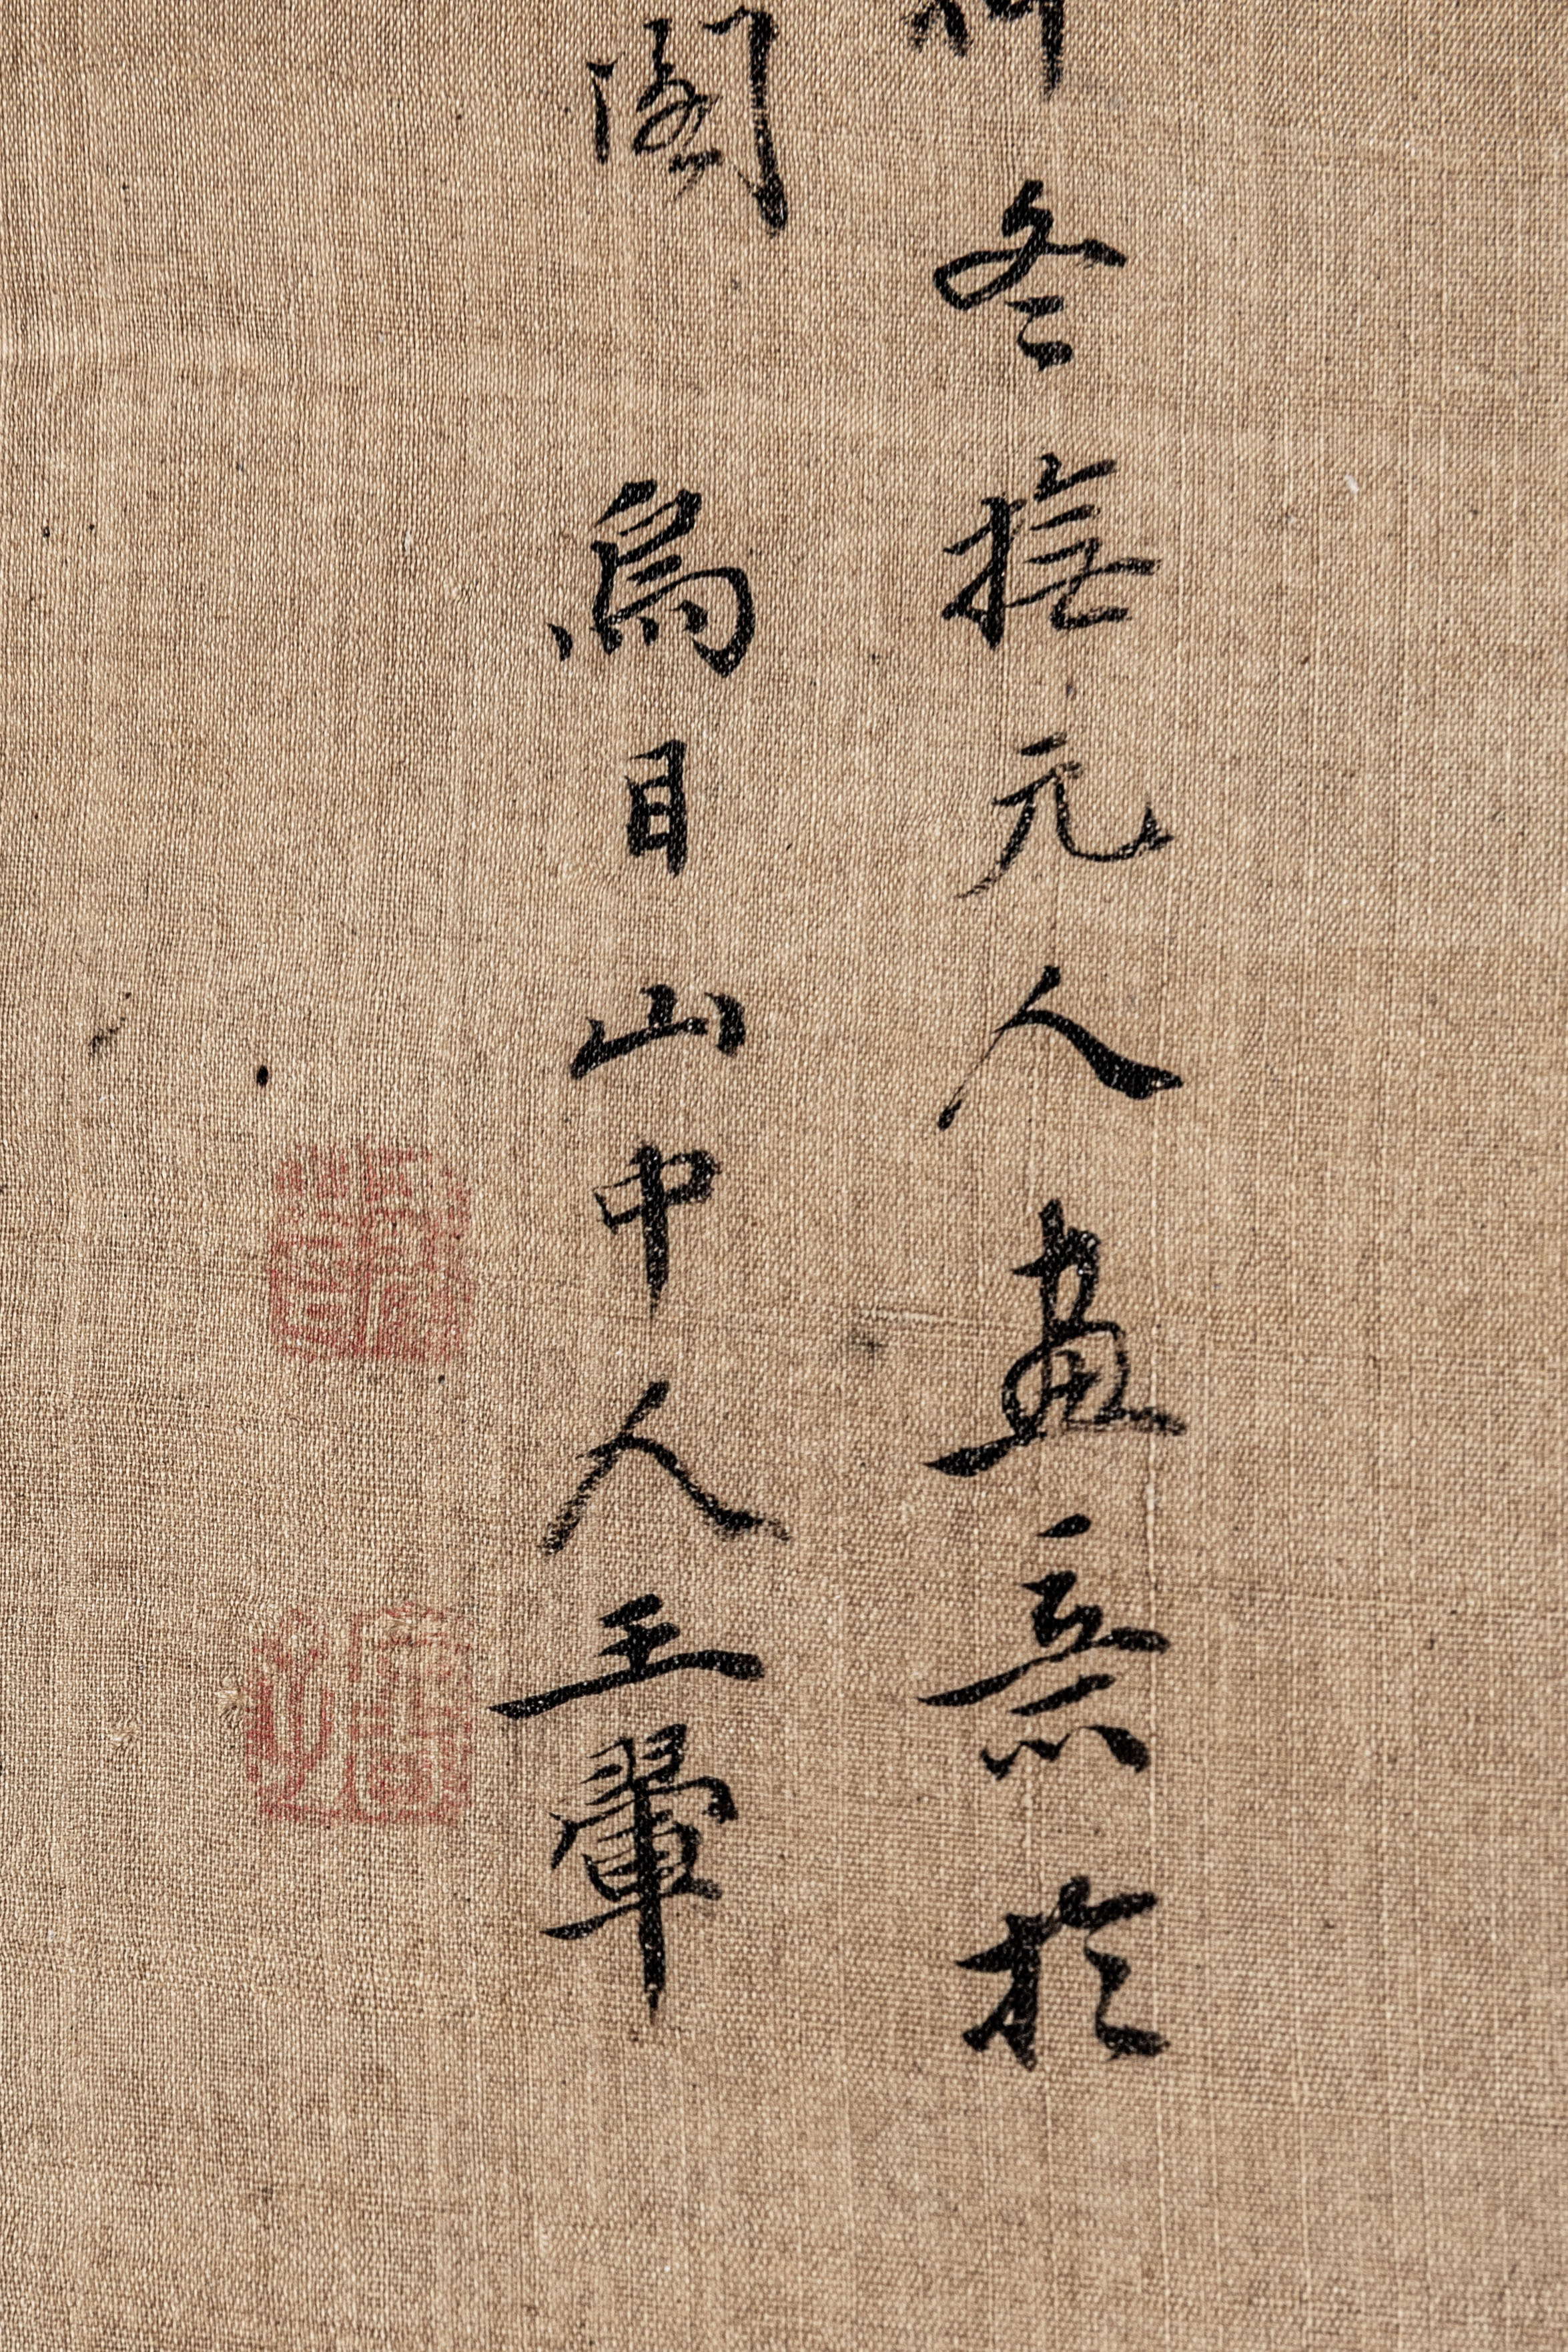 冬撫元人畫意於
閣 烏目山中人王翬